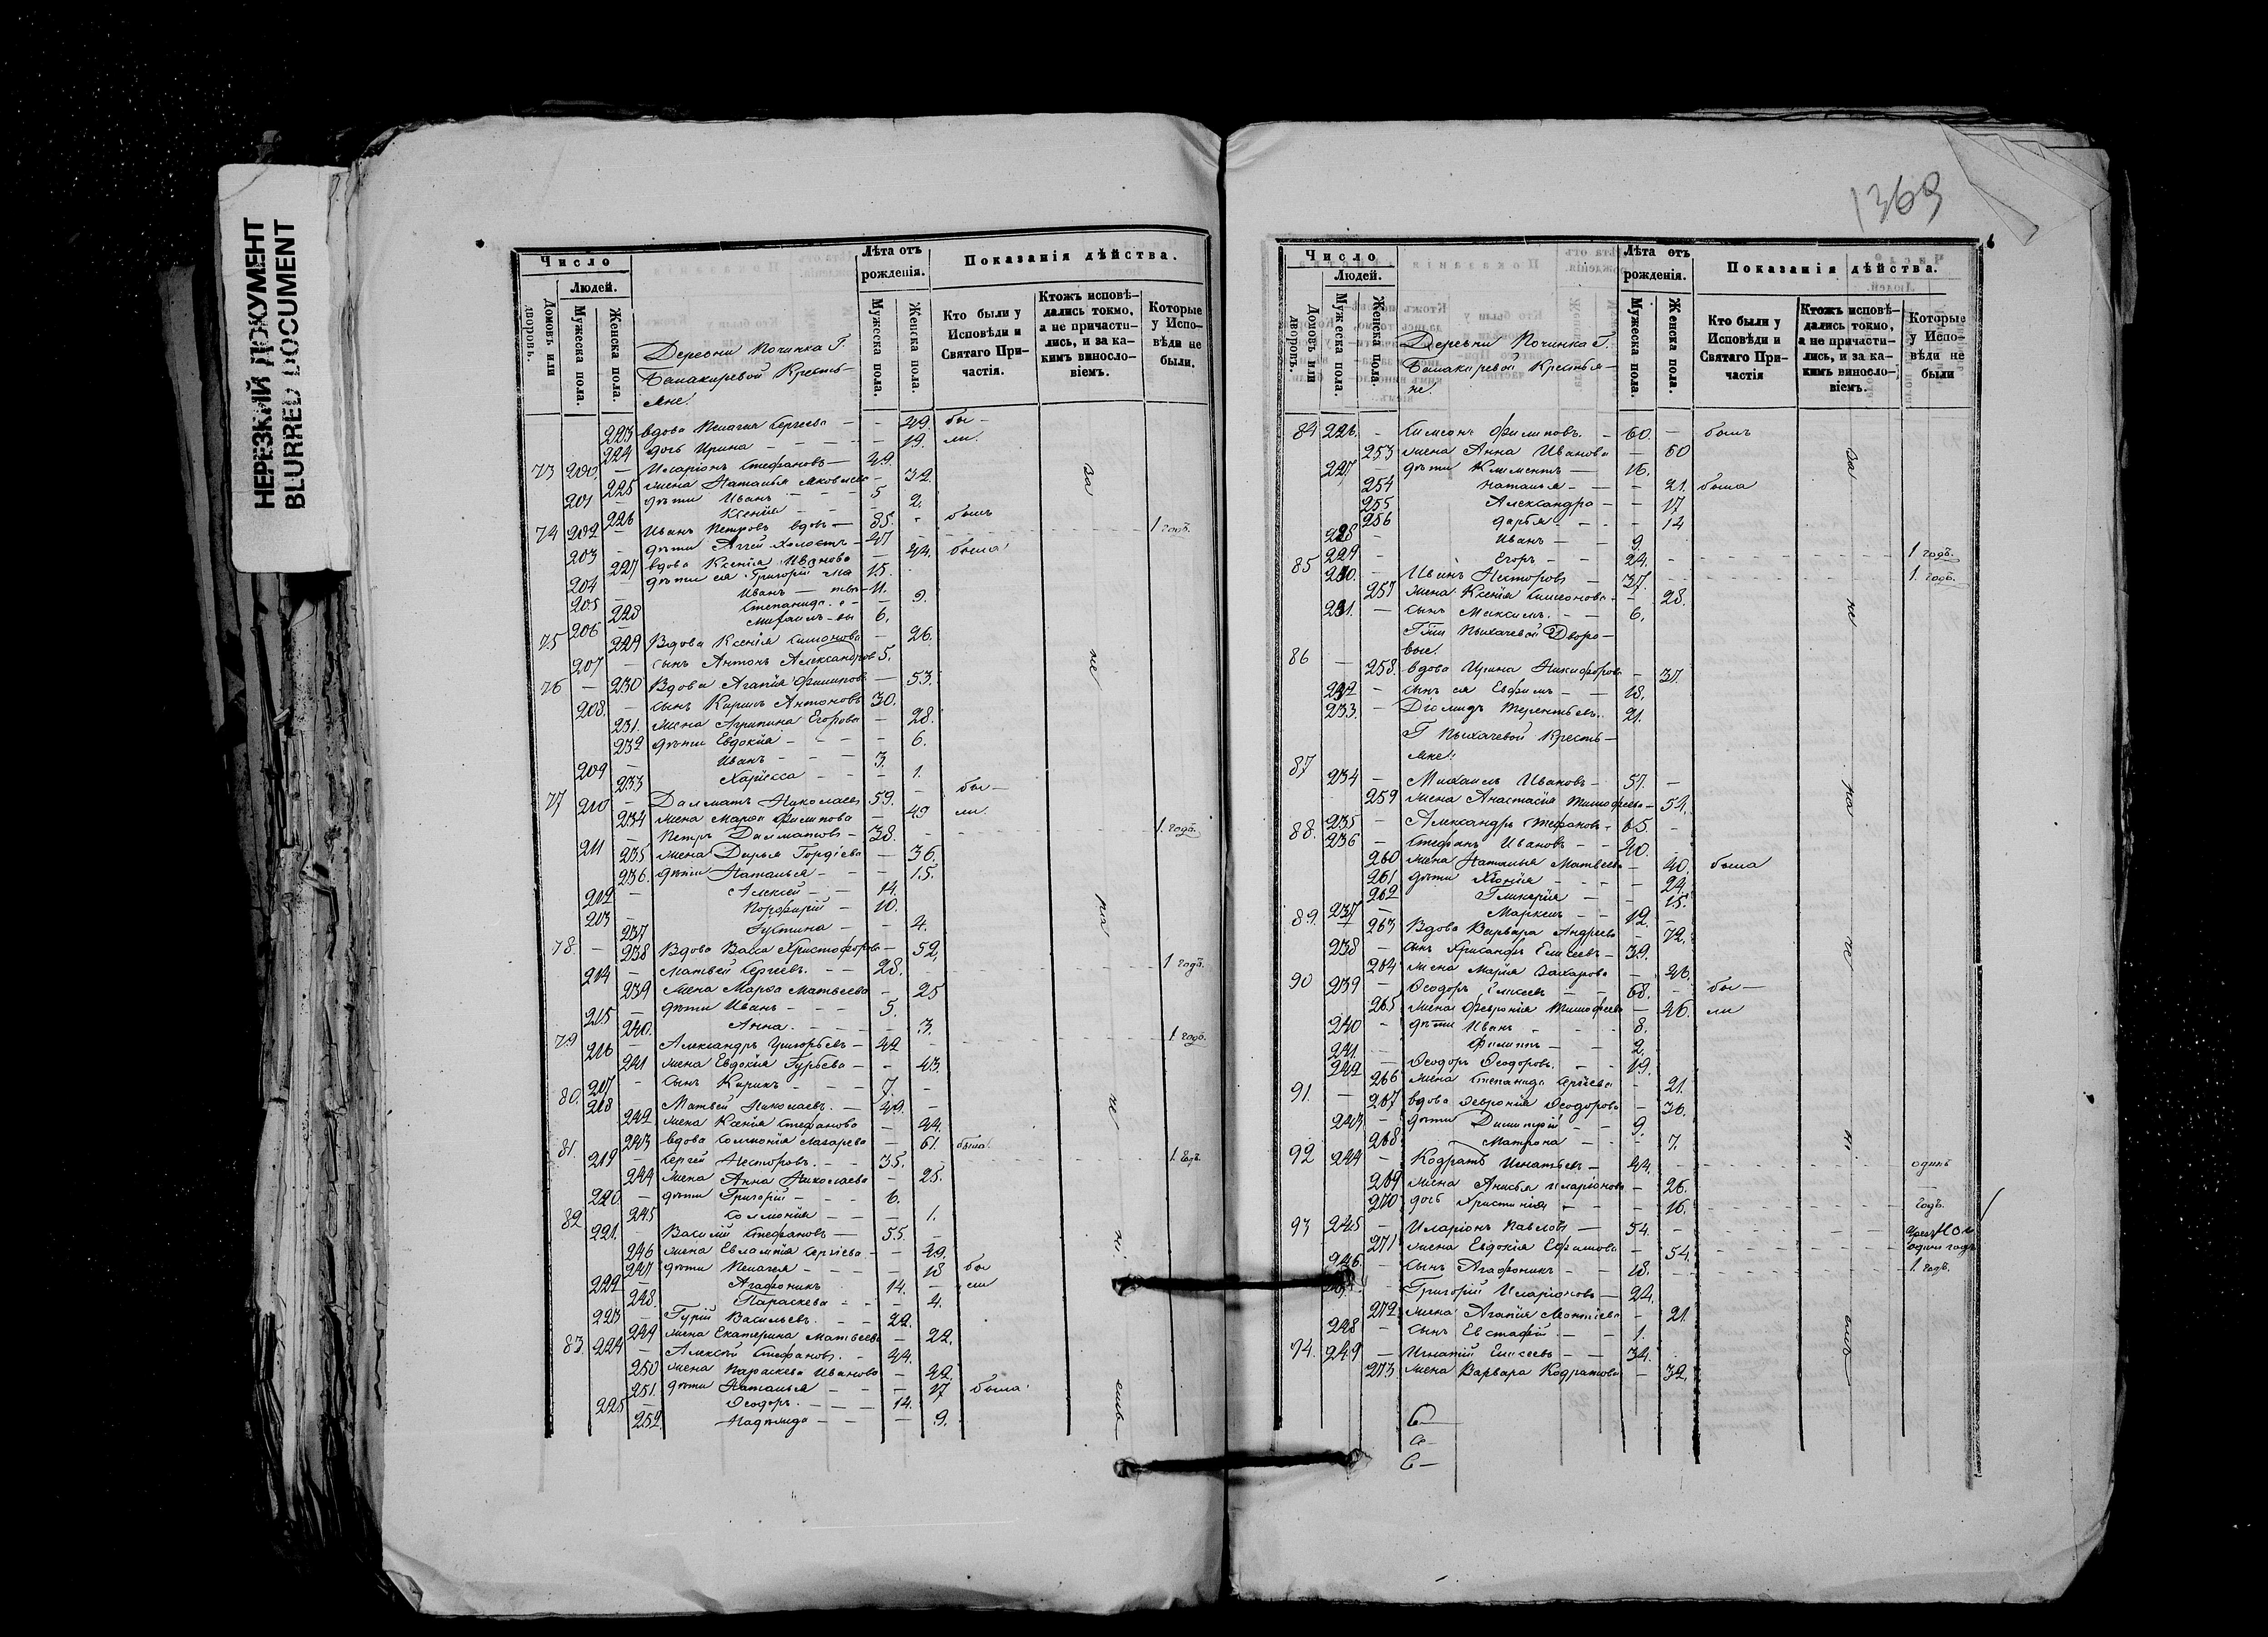 НЕРЕЗКИЙ ДОКУМЕНТ
BLURRED DOCUMENT
Число
Людей.
Домовъ или дворовъ.
Мужеска пола.
Женска пола.
Деревни Починка Г.
Балакиревой Кресть-
яне.
Лѣта отъ рожденія.
Мужеска пола.
Женска пола.
Показанія дѣйства.
Кто были у Исповѣди и Святаго При-частія.
Ктожъ исповѣ-дались токмо, а не причасти-лись, и за ка-кимъ винослo-віемъ.
Которые у Испо-вѣди не были.
223 вдова Пелагия Сергеева — - 49. бы-
224 дочь Ирина - - 19. ли.
73 200. — Иларіонъ Стефановъ — 49.
225 жена Наталья Яковлева - 32.
201 — дѣти Иванъ — 5
226 Ксенія - - 2.
74 202 — Иванъ Петровъ вдовъ — 85. - былъ
203 - дѣти Аггей холостъ — 47 - 1 годъ.
227 вдова Ксенія Иванова — 44. была
204 дѣти ея Григорій 15.
205 — Иванъ — 11.
228 Степанида - 9.
206 Михаилъ 6.
75 229 Вдова Ксенія Симонова — 26.
207 — сынъ Антонъ Александровъ 5.
76 — 230 Вдова Агапія Филипова — 53.
208. — сынъ Кирилъ Антоновъ 30.
231. жена Агрипина Егорова — 28.
232 дѣти Евдокія — 6.
209 — Иванъ — 3.
233 Харiесса — 1.
77 210 — Далматъ Николаевъ 59. - бы-
234 жена Марѳа Филипова — 49 ли.
211 - Петръ Далматовъ — 38. - 1. годъ.
235 жена Дарья Гордіева — 36.
236. дѣти Наталья — 15.
212 — Алексей — 14.
213 — Порфирій — 10.
237 Іустина — 4.
78. — 238 Вдова Васса Христофорова — 52.
214 — Матвей Сергеевъ. — 28. - 1 годъ.
239 жена Марѳа Матвеева - 25
215 — дѣти Иванъ — 5.
240. Анна. — 3.
79 216 — Александръ Григорьевъ — 42 - 1 годъ.
241 жена Евдокія Гурьева — 43.
217 - сынъ Кирикъ — 7. -
80. 218 — Матвей Николаевъ. — 49. -
242 жена Ксенія Стефанова — 44.
243 вдова Соломонія Лазарева — 61. была.
81. 219 — Сергей Несторовъ. — 35. - 1 годъ.
244 жена Анна Николаева - 25.
220 — дѣти Григорій — 6.
245 Соломонія — 1.
82 221. — Василій Стефановъ — 55. -
246 жена Евлампія Сергіева. - 49.
247 дѣти Пелагея — 18 бы
222 — Агафоникъ 14. - ли
248. Параскева — 4.
223 — Гурій Васильевъ. — 22.
249 жена Екатерина Матвеева — 22.
83. 224 — Алексѣй Стефановъ. - 44.
250 жена Параскева Иванова — 42.
251. дѣти Наталья — 17 была.
225 — Ѳеодоръ. — 14.
252. Надежда — 9.
За
не
ра
че
ні
емъ
1369
Число
Людей.
Домовъ или дворовъ.
Мужеска пола.
Женска пола.
Деревни Починка Г.
Балакиревой Крестья-
не.
Лѣта отъ рожденія.
Мужеска пола.
Женска пола.
Показанія дѣйства.
Кто были у Исповѣди и Святаго При-частія
Ктожъ исповѣ-дались токмо, а не причасти-лись, и за ка-кимъ винослo-віемъ.
Которые у Испо-вѣди не были
84 226. - Симеонъ Филиповъ. — 60. — былъ
253 жена Анна Иванова — 60
227 — дѣти Климентъ — 16.
254 Наталья — 21. была
255 Александра — 17
256 Дарья — 14
228 — Иванъ — 9.
229 — Егоръ — 24. - 1 годъ.
85 230. — Иванъ Несторовъ — 37. - 1. годъ.
257 жена Ксенія Симеонова - 28.
231. — сынъ Максимъ. — 6.
Г-жи Пыхачевой Дворо-
вые.
86 — 258. вдова Ирина Никифорова - 37.
232 — сынъ ея Евфимъ — 18.
233. — Діомидъ Терентьевъ. 21.
Г Пыхачевой Кресть-
яне.
87 234 — Михаилъ Ивановъ — 57. -
259 жена Анастасія Тимофеева — 54.
88. 235 — Александръ Стефановъ - 65. -
236 — Стефанъ Ивановъ — 40.
260 жена Наталья Матвеева — 40. была
261 дѣти Хіонія — 24.
262 Гликерія — 15.
237 — Маркелъ — 12.
89. - 263 Вдова Варвара Андреева - 72.
238 — сынъ Хрисанфъ Елисеевъ — 39.
264 жена Марія Захарова — 46.
90 239 — Ѳеодоръ Елисеевъ — 68. - бы-
265 жена Февронія Тимофеева — 46. ли
240 - дѣти Иванъ - 8.
241. — Филиппъ — 2.
242 — Ѳеодоръ Ѳеодоровъ. - 19.
266 жена Степанида Сергіева - 21.
91. — 267 вдова Февронія Ѳеодорова — 36.
243 — дѣти Димитрій — 9.
268 Матрона — 7.
92 244 — Кодратъ Игнатьевъ — 44. - одинъ
269 жена Анисья Иларіонова — 26.
270 дочь Христинія — 16. - годъ.
93 245 — Иларіонъ Павловъ — 54. -
271 жена Евдокія Ефимова — 54. - одинъ годъ
246. — сынъ Агафоникъ — 18. - 1 годъ.
Григорій Иларіоновъ — 24.
272 жена Агапія Леонтіева - 21
248 — сынъ Евстафій — 1.
94. 249 — Игнатій Елисеевъ — 34.
273. жена Варвара Кодратова — 32.
За
не
ра
че
ні
емъ